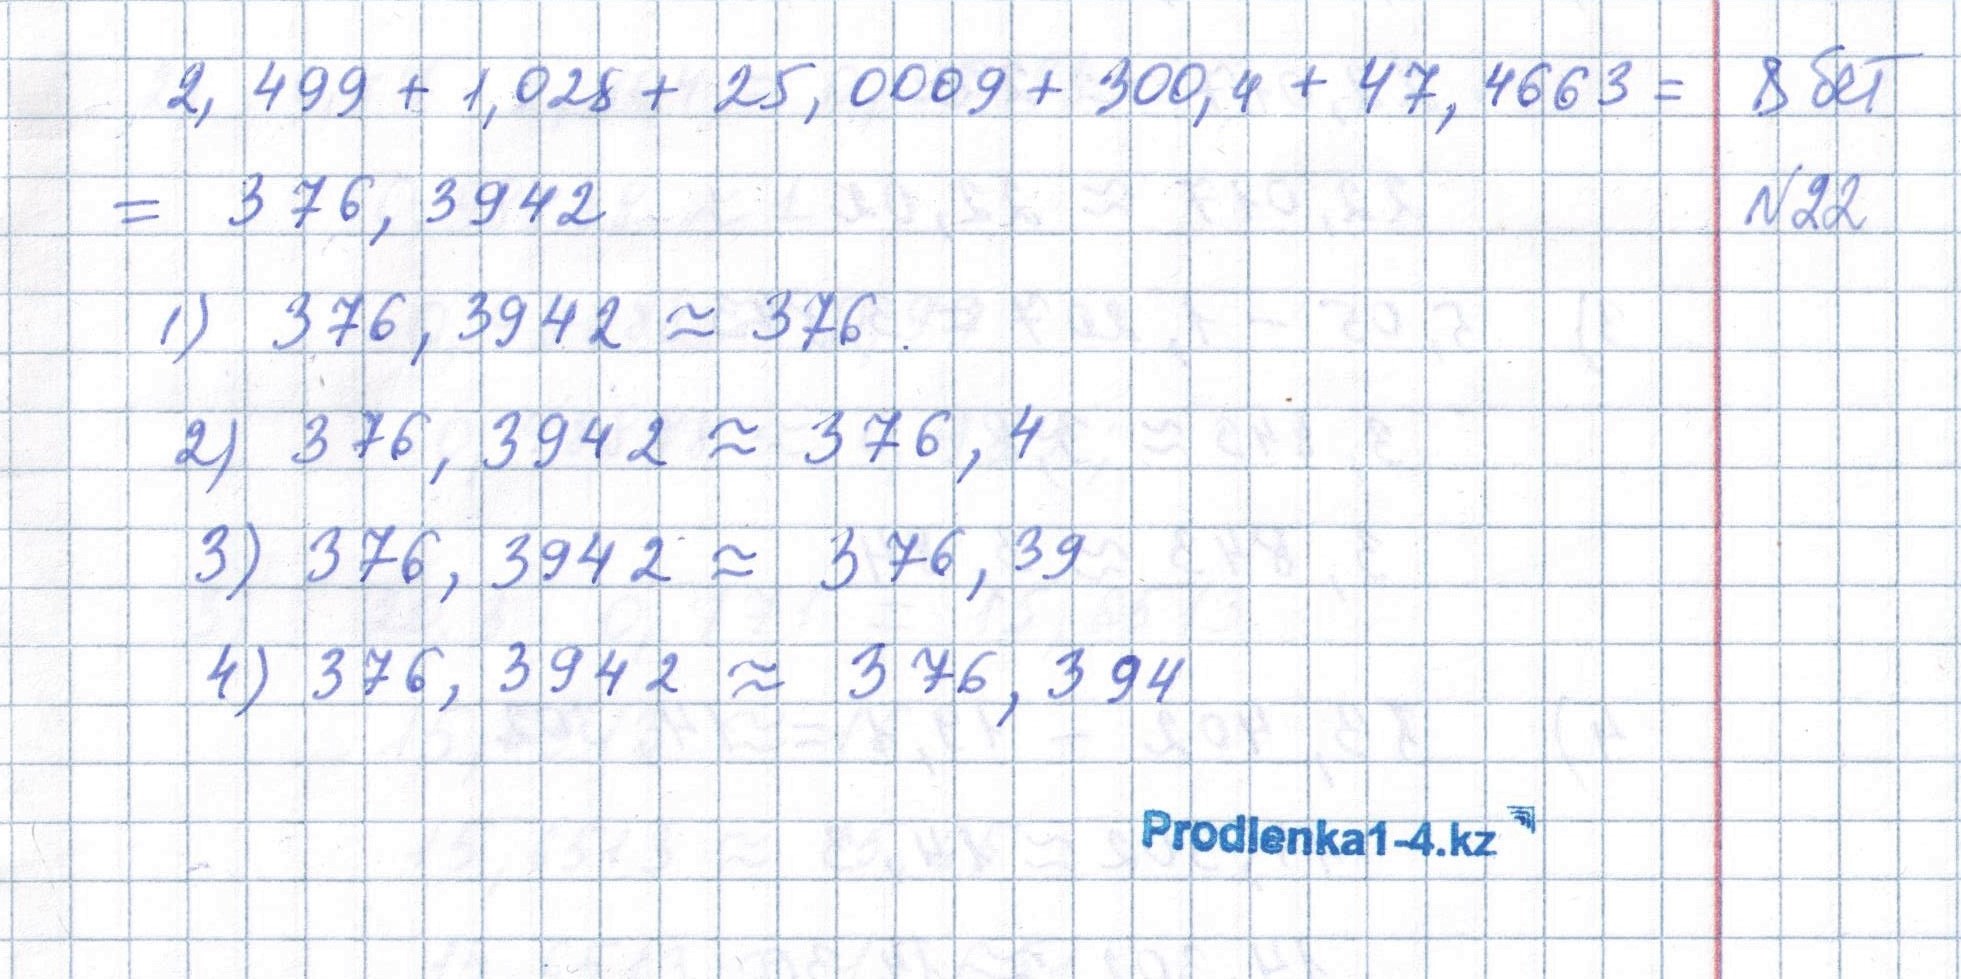 2,499 + 1,028 + 25,0009 + 300,4 + 47,4663 = 8 бет
= 376,3942 N22
1) 376,3942 ≈ 376.
2) 376,3942 ≈ 376,4
3) 376,3942 ≈ 376,39
4) 376,3942 ≈ 376,394
Prodlenka1-4.kz